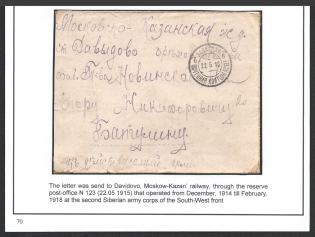 Московско-Казанская ж д.
Давыдово
Новинско
Никифоровичу
Батулину
изъ действовавшей армии
22.5.15
The letter was send to Davidovo, Moskow-Kazen' railway, through the reserve
post-office N 123 (22.05.1915) that operated from December, 1914 till February,
1918 at the second Siberian army corps of the South-West front
70